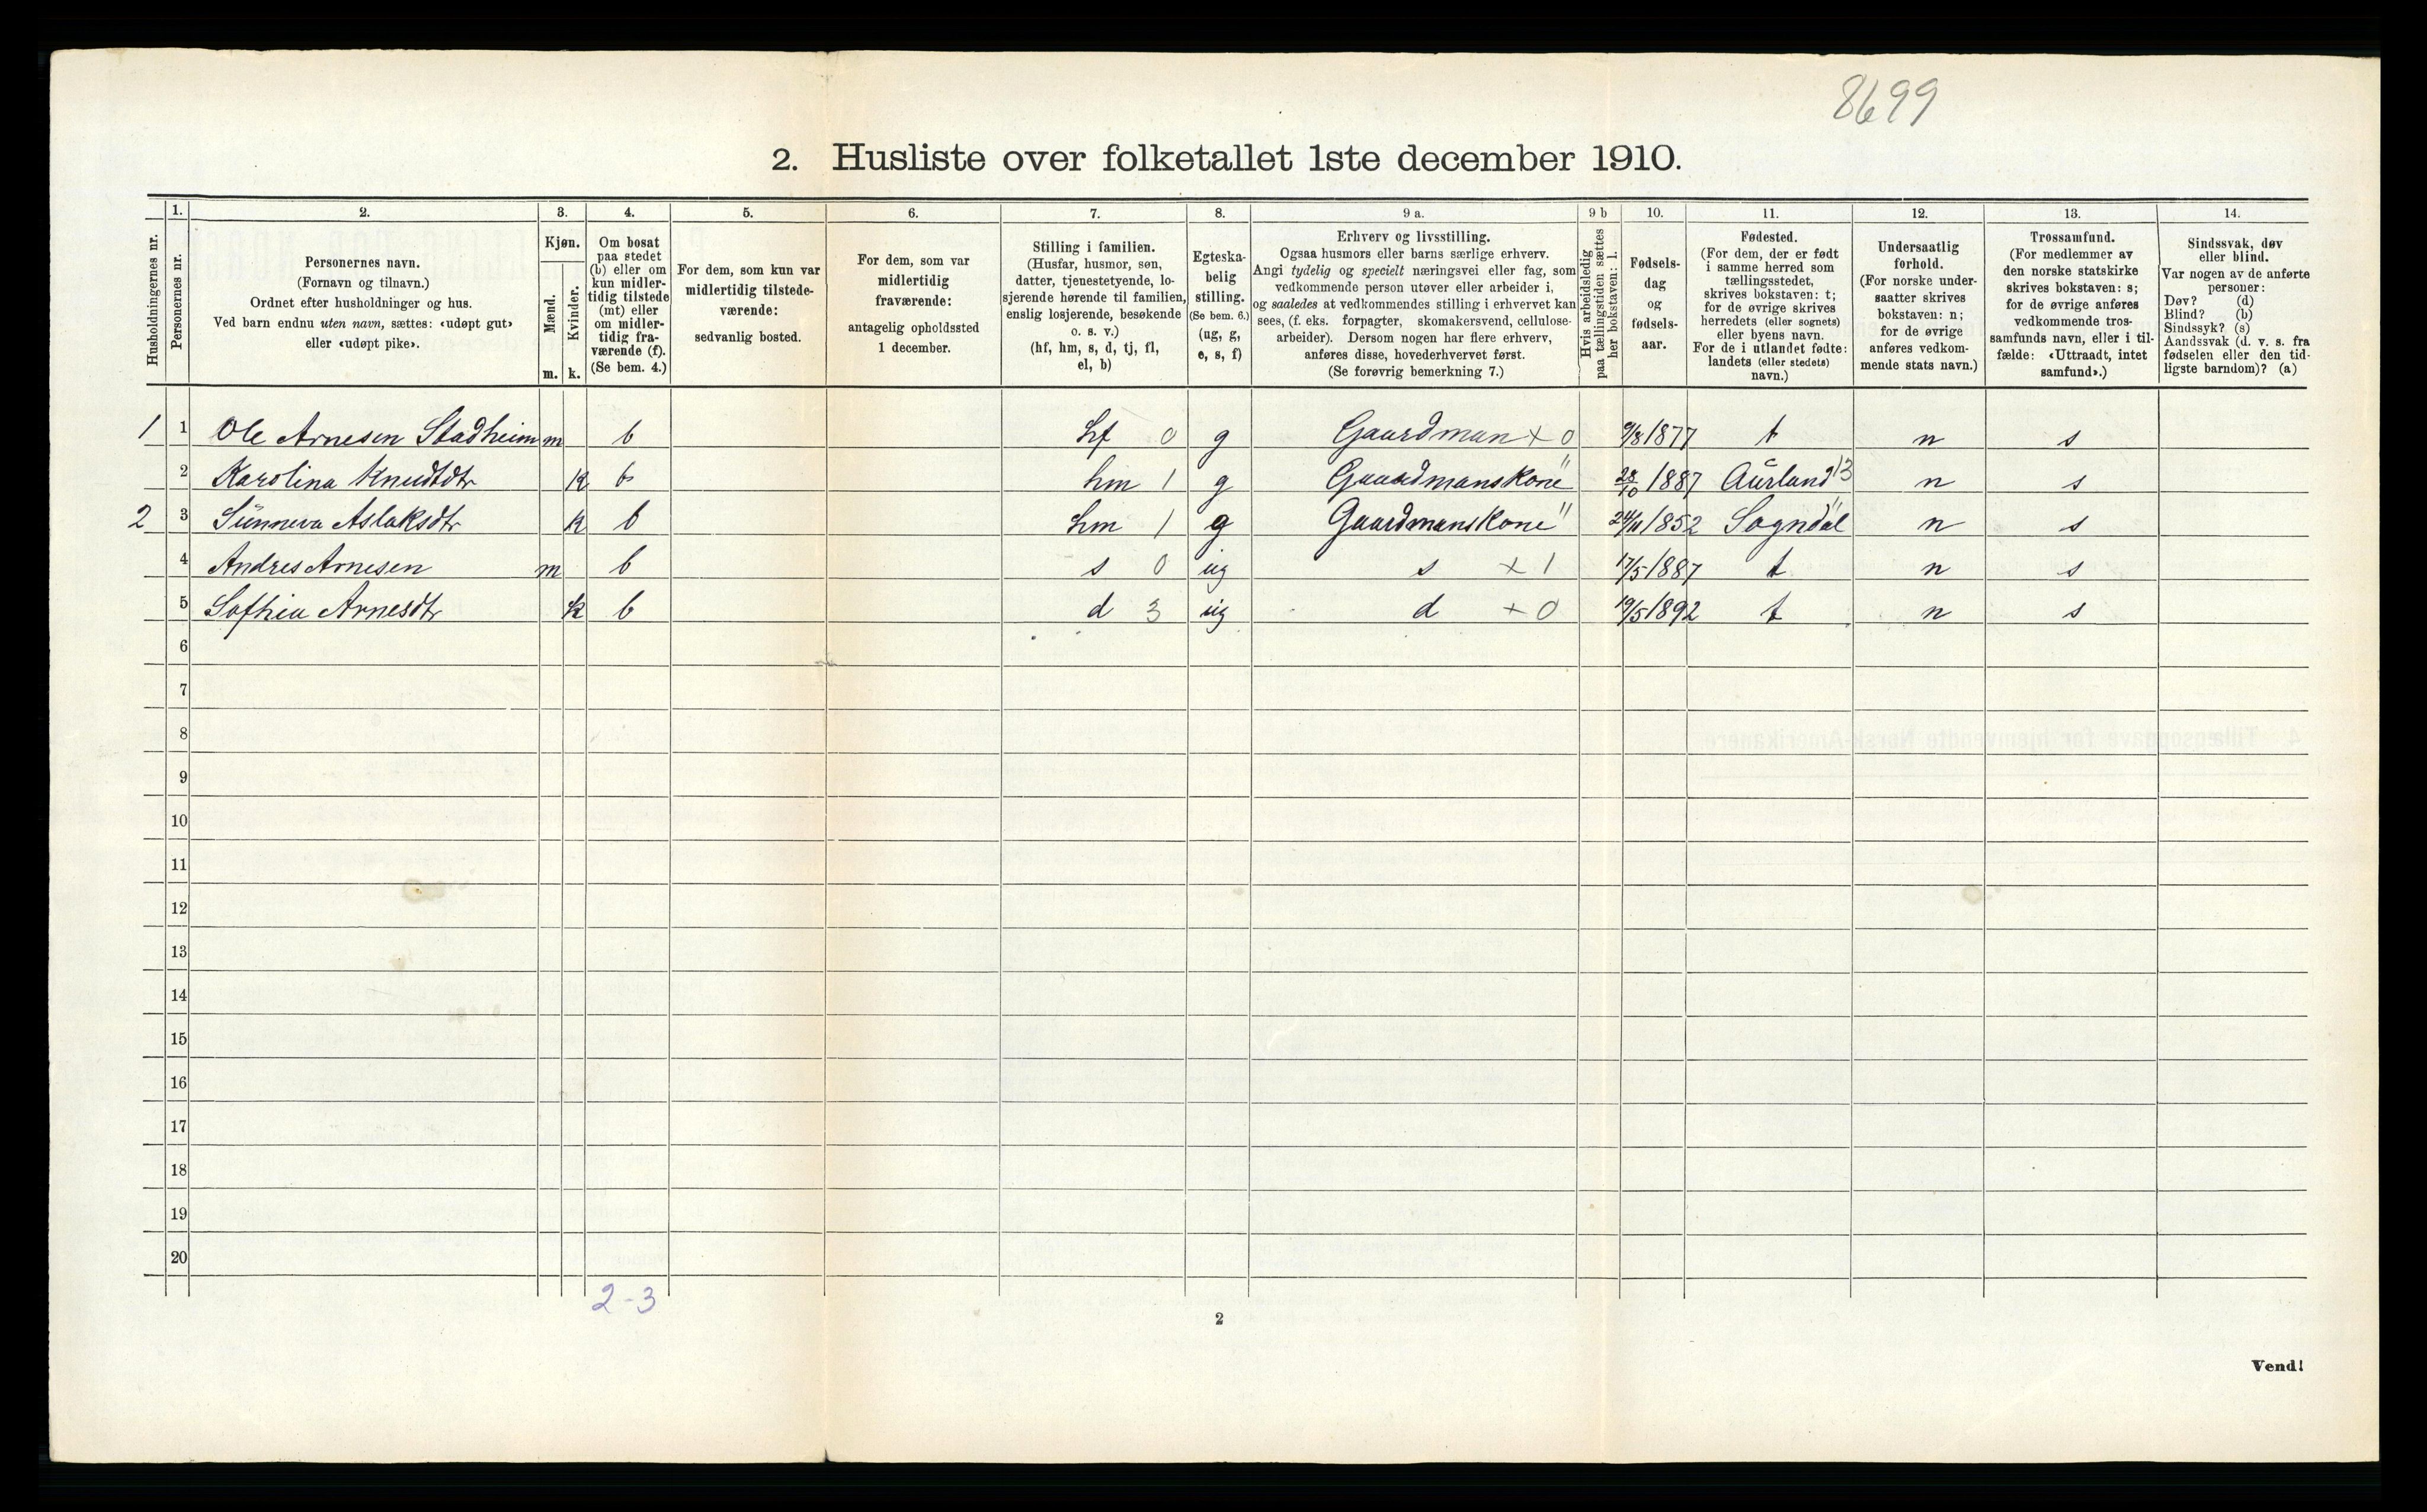 8699
2. Husliste over folketallet 1ste december 1910.
Husholdningernes nr.
1. Personernes nr.
2. Personernes navn. (Fornavn og tilnavn.) Ordnet efter husholdninger og hus. Ved barn endnu uten navn, sættes: «udøpt gut» eller «udøpt pike».
3. Kjøn. Mænd. m. Kvinder. k.
4. Om bosat paa stedet (b) eller om kun midler-tidig tilstede (mt) eller om midler-tidig fra-værende (f). (Se bem. 4.)
5. For dem, som kun var midlertidig tilstede-værende: sedvanlig bosted.
6. For dem, som var midlertidig fraværende: antagelig opholdssted 1 december.
7. Stilling i familien. (Husfar, husmor, søn, datter, tjenestetyende, lo-sjerende hørende til familien, enslig losjerende, besøkende o. s. v.) (hf, hm, s, d, tj, fl, el, b)
8. Egteska-belig stilling. (Se bem. 6.) (ug, g, e, s, f)
9 a. Erhverv og livsstilling. Ogsaa husmors eller barns særlige erhverv. Angi tydelig og specielt næringsvei eller fag, som vedkommende person utøver eller arbeider i, og saaledes at vedkommendes stilling i erhvervet kan sees, (f. eks. forpagter, skomakersvend, cellulose-arbeider). Dersom nogen har flere erhverv, anføres disse, hovederhvervet først. (Se forøvrig bemerkning 7.)
9 b Hvis arbeidsledig paa tællingstiden sættes her bokstaven: l.
10. Fødsels-dag og fødsels-aar.
11. Fødested. (For dem, der er født i samme herred som tællingsstedet, skrives bokstaven: t; for de øvrige skrives herredets (eller sognets) eller byens navn. For de i utlandet fødte: landets (eller stedets) navn.)
12. Undersaatlig forhold. (For norske under-saatter skrives bokstaven: n; for de øvrige anføres vedkom-mende stats navn.)
13. Trossamfund. (For medlemmer av den norske statskirke skrives bokstaven: s; for de øvrige anføres vedkommende tros-samfunds navn, eller i til-fælde: «Uttraadt, intet samfund».)
14. Sindssvak, døv eller blind. Var nogen av de anførte personer: Døv? (d) Blind? (b) Sindssyk? (s) Aandssvak (d. v. s. fra fødselen eller den tid-ligste barndom)? (a)
1 1 Ole Arnesen Stadheim m b hf 0 g Gaardman × 0 9/8 1877 t n s
2 Karolina Knudtdtr k b hm 1 g Gaardmanskone " 28/10 1887 Aurland 13 n s
2 3 Sünneva Aslaksdtr k b hm 1 g Gaardmanskone " 24/11 1852 Sogndal " n s
4 Andres Arnesen m b s 0 ug s × 1 17/5 1887 t n s
5 Sofhia Arnesdtr k b d 3 ug d + 0 19/5 1892 t n s
6
7
8
9
10
11
12
13
14
15
16
17
18
19
20
2-3
2
Vend!